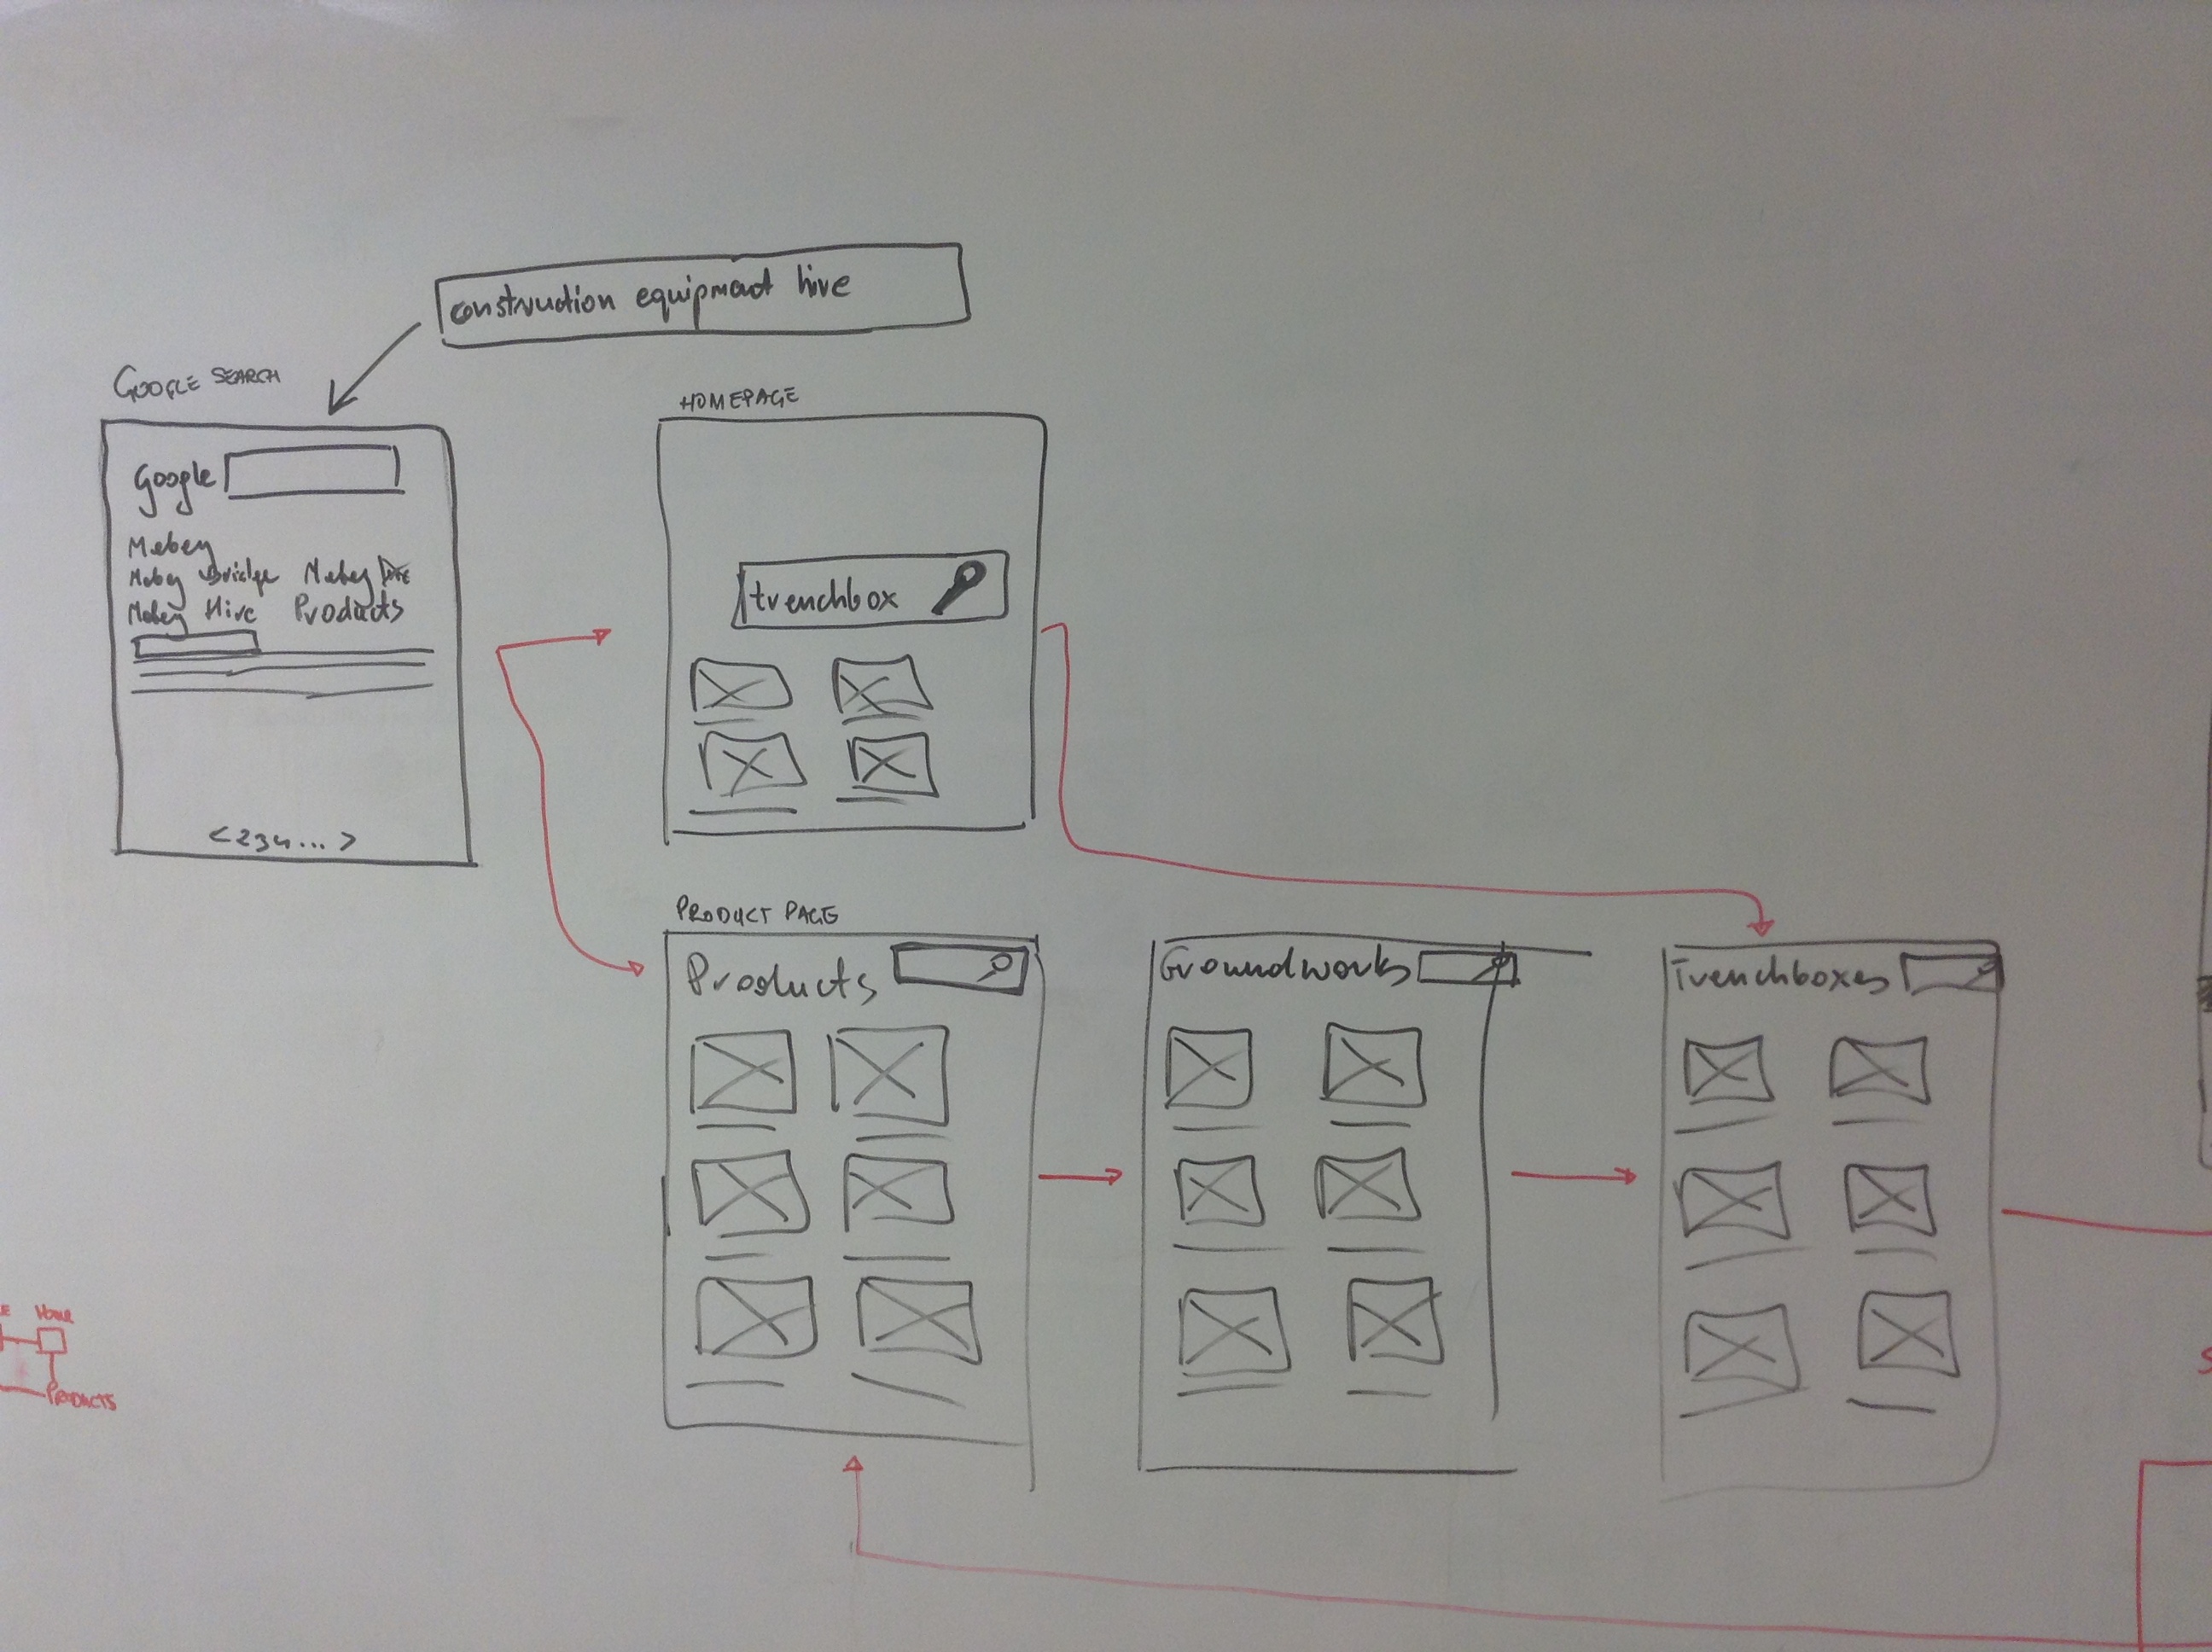 construction equipment hire
GOOGLE SEARCH
Google
Mabey
Mabey Bridge Mabey
Mabey Hire Products
<234...>
HOMEPAGE
trenchbox
PRODUCT PAGE
Products
Groundworks
Trenchboxes
HOME
PRODUCTS